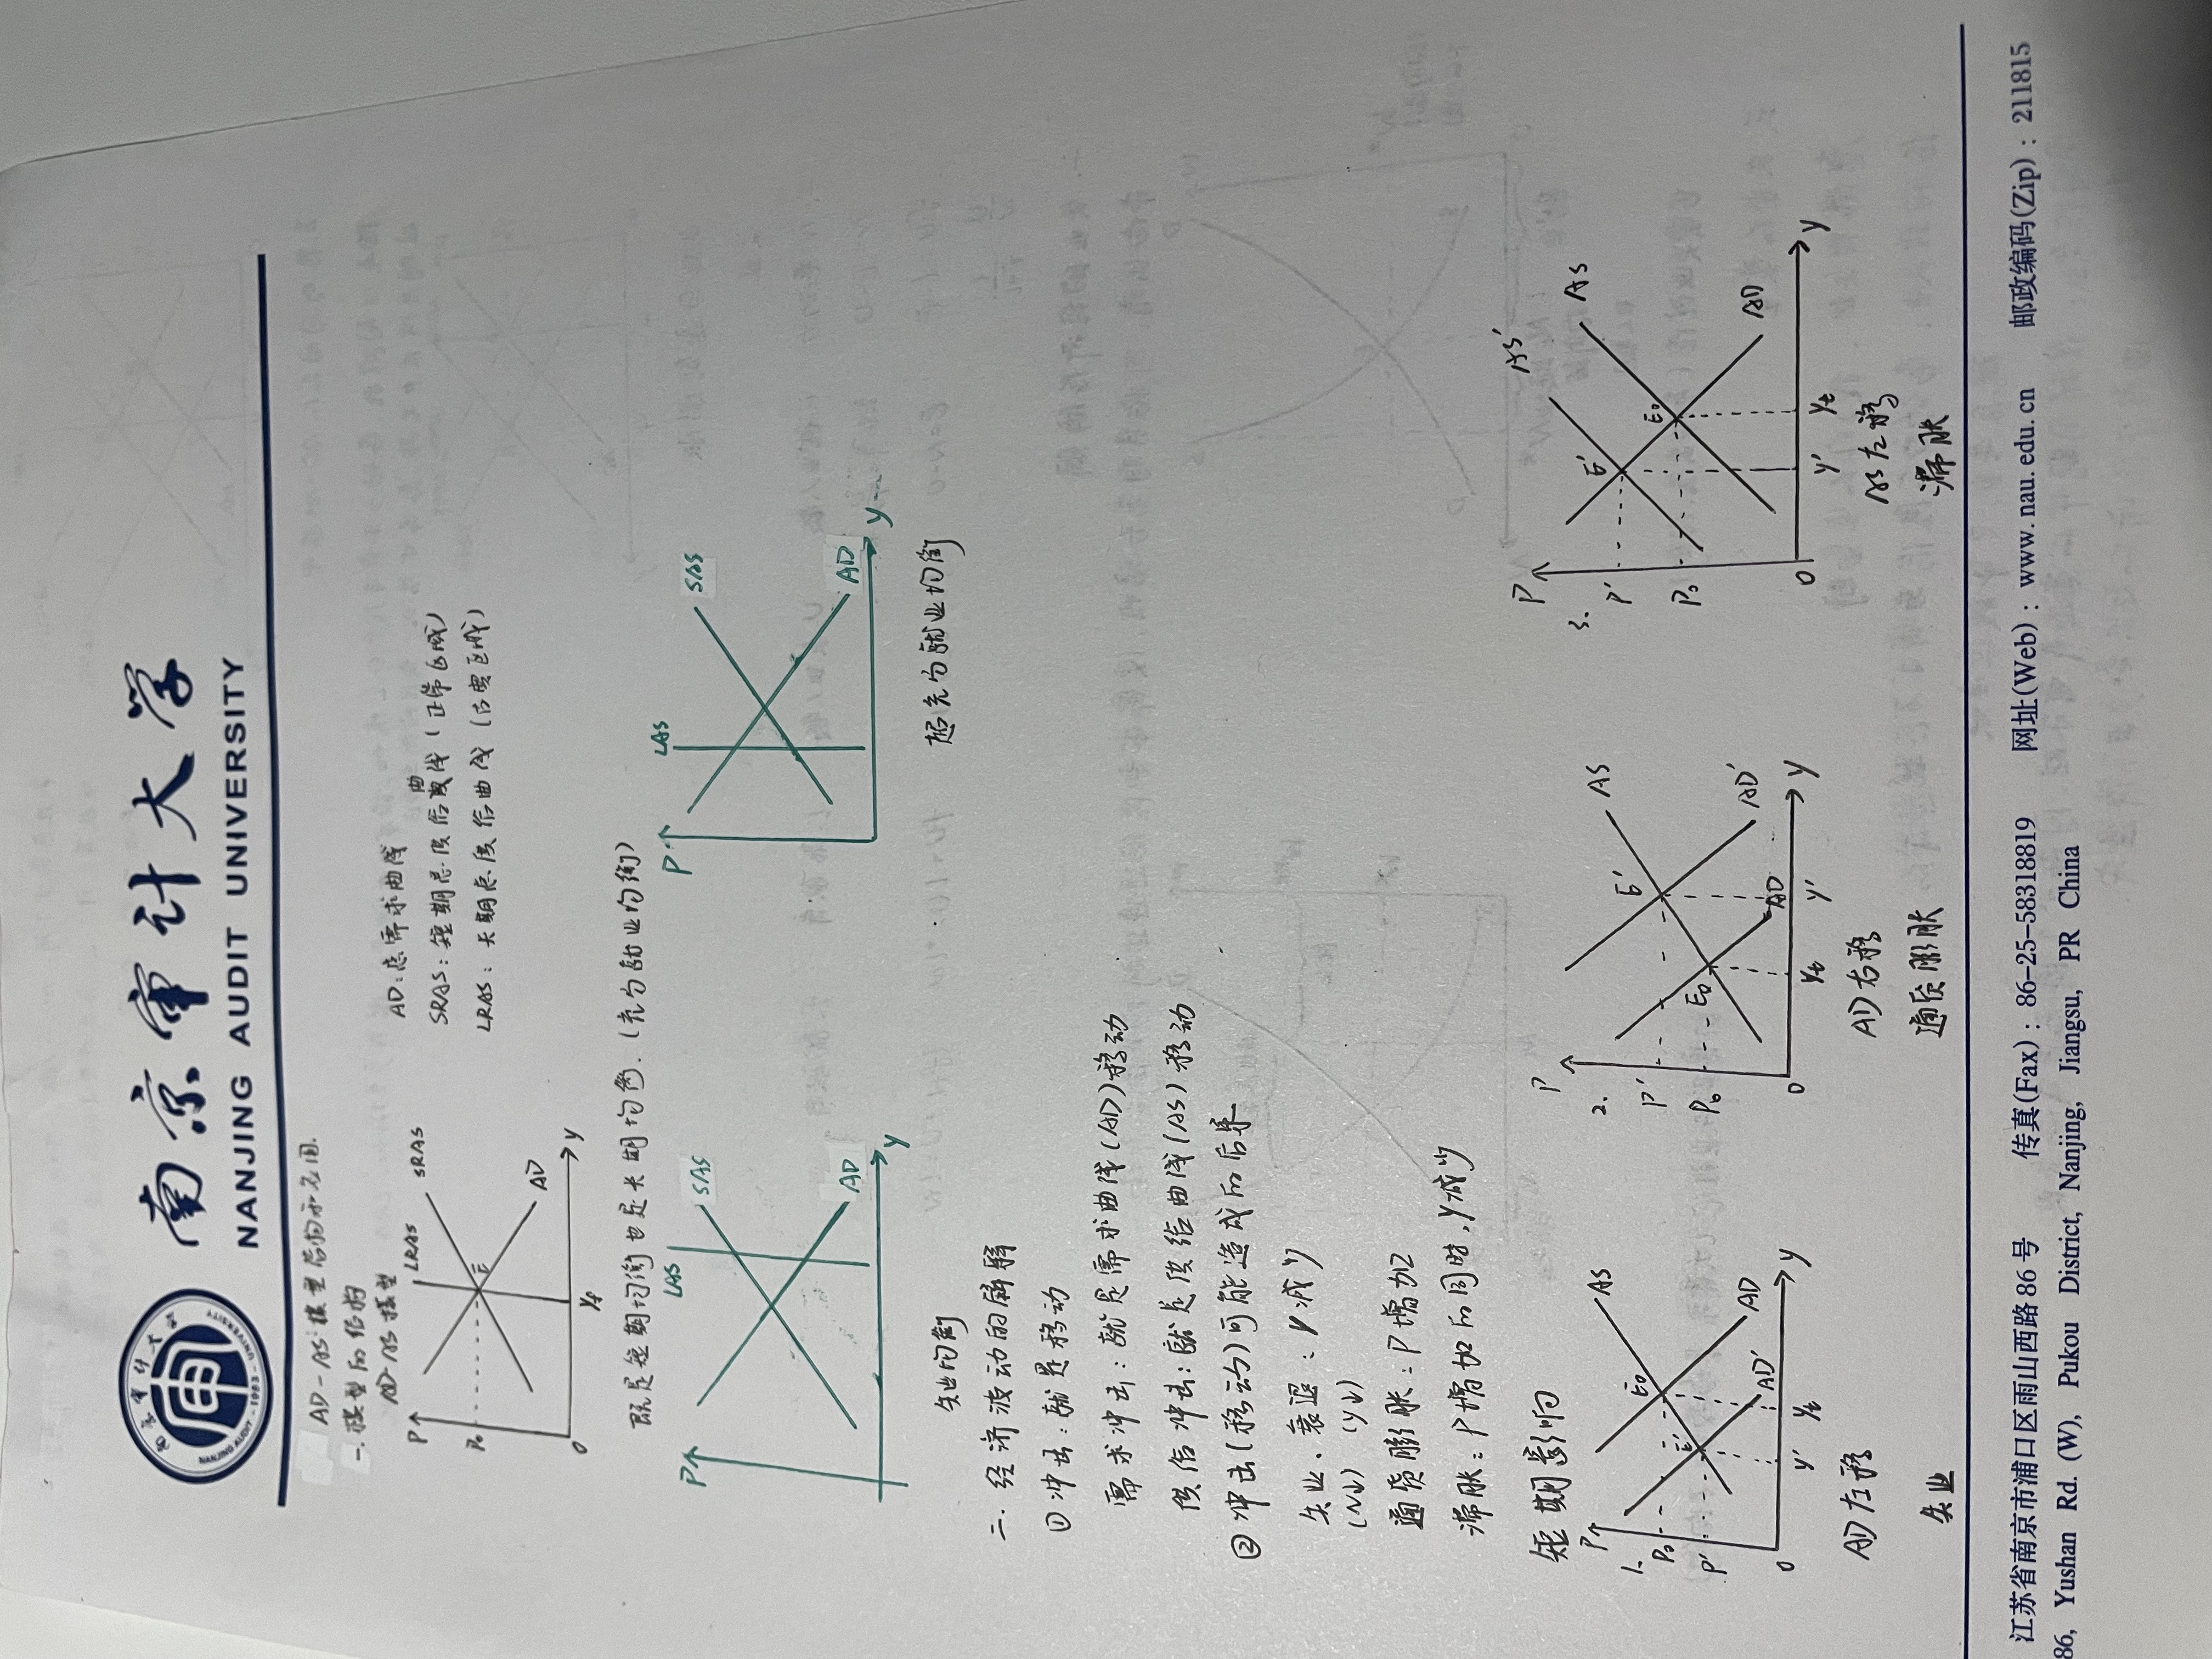 南京审计大学
NANJING AUDIT UNIVERSITY
AD-AS模型结构示意图.
一.模型的结构
AD-AS模型
P
LRAS
SRAS
E
P₀
AD
0
Yf
Y
AD:总需求曲线
SRAS:短期总供给曲线(正常区域)
LRAS:长期总供给曲线(古典区域)
既是短期均衡也是长期均衡.(充分就业均衡)
P
LAS
SAS
AD
Y
失业均衡
P
LAS
SAS
AD
Y
超充分就业均衡
二.经济波动的解释
①冲击:就是移动
需求冲击:就是需求曲线(AD)移动
供给冲击:就是供给曲线(AS)移动
②冲击(移动)可能造成的后果
失业、衰退:Y减少
(N↓) (Y↓)
通货膨胀:P增加
滞胀:P增加的同时,Y减少
短期影响
1.
P
AS
E₀
P₀
E'
P'
AD
AD'
0
Y'
Yf
Y
AD左移
失业
2.
P
AS
E'
P'
E₀
P₀
AD'
AD
0
Yf
Y'
Y
AD右移
通货膨胀
3.
P
AS'
AS
E'
P'
E₀
P₀
AD
0
Y'
Yf
Y
AS左移
滞胀
江苏省南京市浦口区雨山西路86号 传真(Fax):86-25-58318819 网址(Web):www.nau.edu.cn 邮政编码(Zip):211815
86, Yushan Rd. (W), Pukou District, Nanjing, Jiangsu, PR China